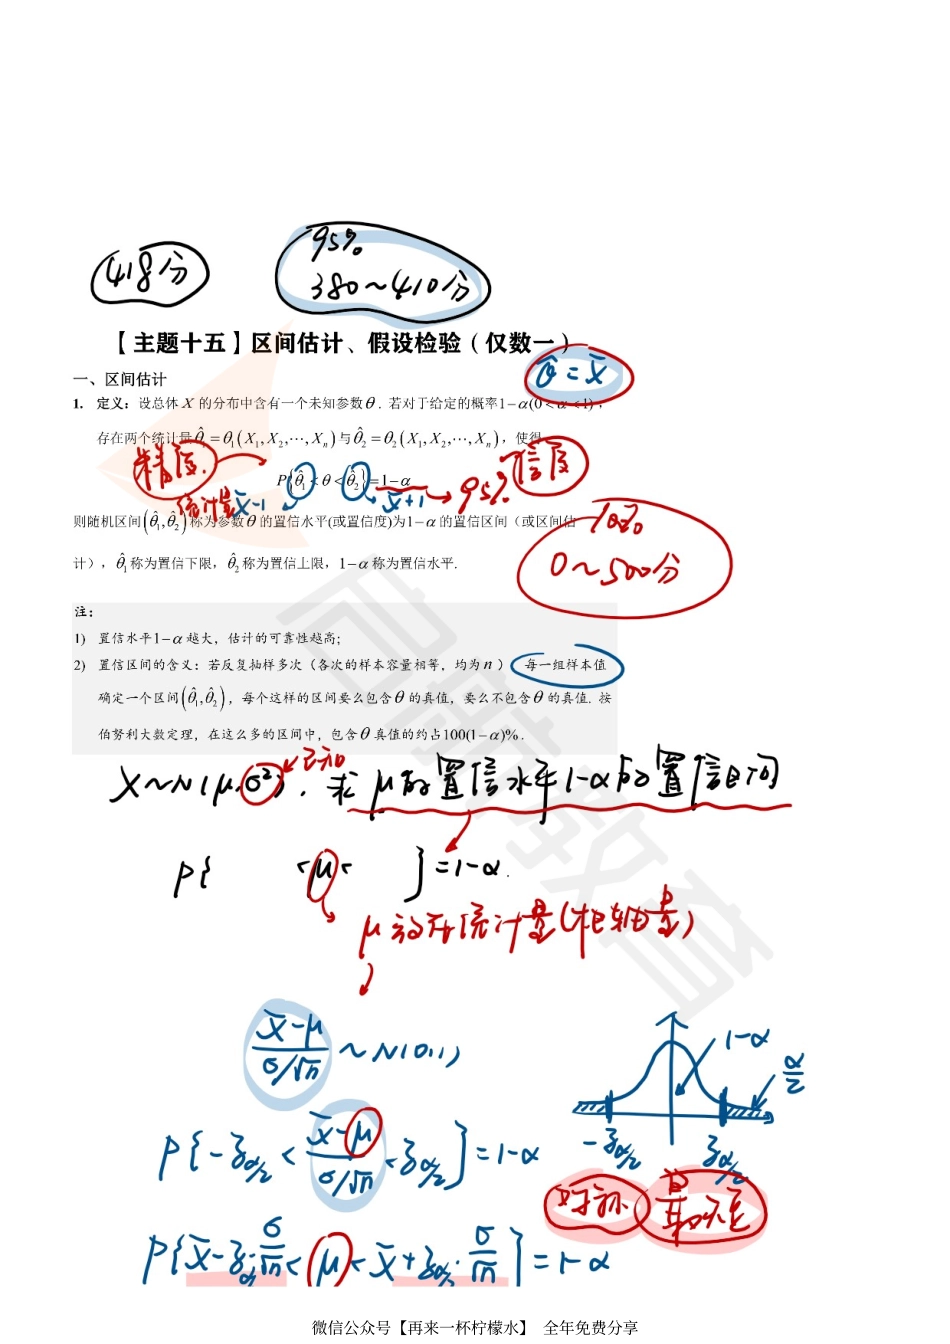 418分
95%
380~410分
【主题十五】区间估计、假设检验（仅数一）
θ̂ = x̄
一、区间估计
1. 定义：设总体 X 的分布中含有一个未知参数 θ . 若对于给定的概率 1−α(0<α<1)，
存在两个统计量 θ̂₁ = θ̂₁(X₁, X₂, ⋯, Xₙ) 与 θ̂₂ = θ̂₂(X₁, X₂, ⋯, Xₙ)，使得
精度
P{θ̂₁ < θ < θ̂₂} = 1−α
信度
统计量 x̄−1
x̄+1
95%
则随机区间 (θ̂₁, θ̂₂) 称为参数 θ 的置信水平(或置信度)为 1−α 的置信区间（或区间估
计），θ̂₁ 称为置信下限，θ̂₂ 称为置信上限，1−α 称为置信水平.
100%
0~500分
注：
1) 置信水平 1−α 越大，估计的可靠性越高；
2) 置信区间的含义：若反复抽样多次（各次的样本容量相等，均为 n ） 每一组样本值
确定一个区间 (θ̂₁, θ̂₂)，每个这样的区间要么包含 θ 的真值，要么不包含 θ 的真值. 按
伯努利大数定理，在这么多的区间中，包含 θ 真值的约占 100(1−α)% .
已知
X~N(μ,σ²)，求 μ的置信水平1-α的置信区间
P{ <μ< }=1-α.
μ的无统计量(枢轴量)
x̄-μ/σ/√n ~N(0,1)
1-α
α/2
-z_α/2
z_α/2
P{-z_α/2 < x̄-μ/σ/√n < z_α/2}=1-α
对称
最短
P{x̄-z_α/2·σ/√n < μ < x̄+z_α/2·σ/√n}=1-α
启航教育
微信公众号【再来一杯柠檬水】 全年免费分享